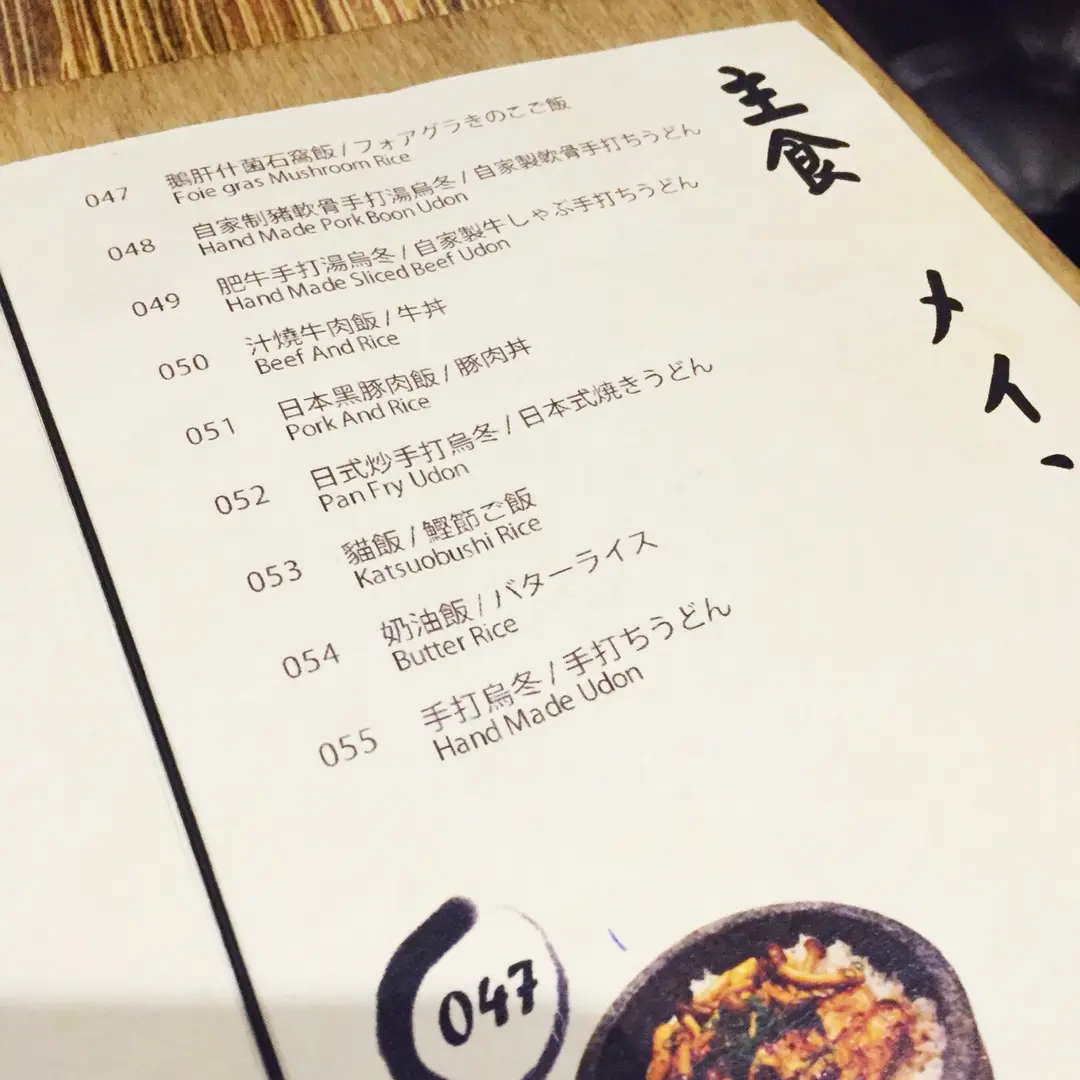 主食
メイン
047 鵝肝什菌石窩飯 / フォアグラきのこご飯
Foie gras Mushroom Rice
048 自家制豬軟骨手打湯烏冬 / 自家製軟骨手打ちうどん
Hand Made Pork Boon Udon
049 肥牛手打湯烏冬 / 自家製牛しゃぶ手打ちうどん
Hand Made Sliced Beef Udon
050 汁燒牛肉飯 / 牛丼
Beef And Rice
051 日本黑豚肉飯 / 豚肉丼
Pork And Rice
052 日式炒手打烏冬 / 日本式焼きうどん
Pan Fry Udon
053 貓飯 / 鰹節ご飯
Katsuobushi Rice
054 奶油飯 / バターライス
Butter Rice
055 手打烏冬 / 手打ちうどん
Hand Made Udon
047